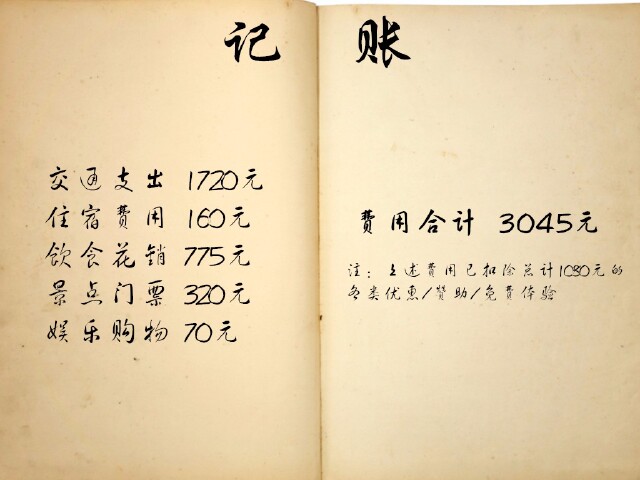 记 账
交通支出 1720元
住宿费用 160元
饮食花销 775元
景点门票 320元
娱乐购物 70元
费用合计 3045元
注：上述费用已扣除总计1080元的
各类优惠/赞助/免费体验